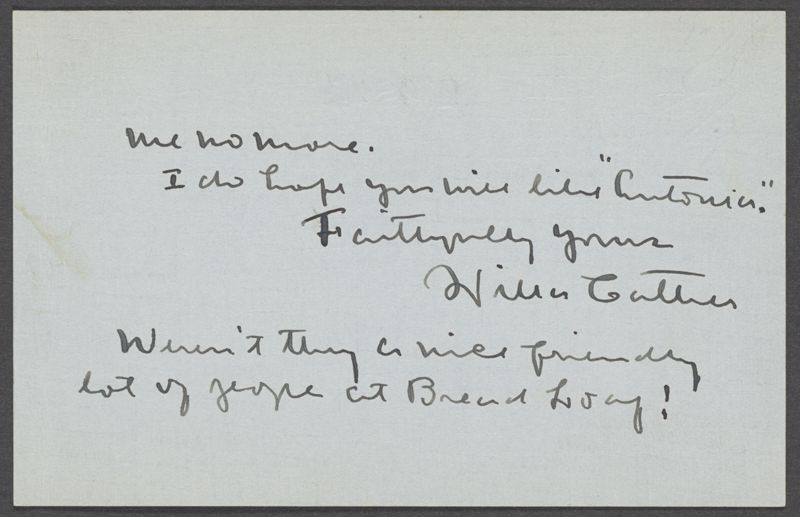 me no more.
I do hope you will like "Antonia".
Faithfully yours
Willa Cather
Weren't they a nice friendly
lot of people at Bread Loaf!